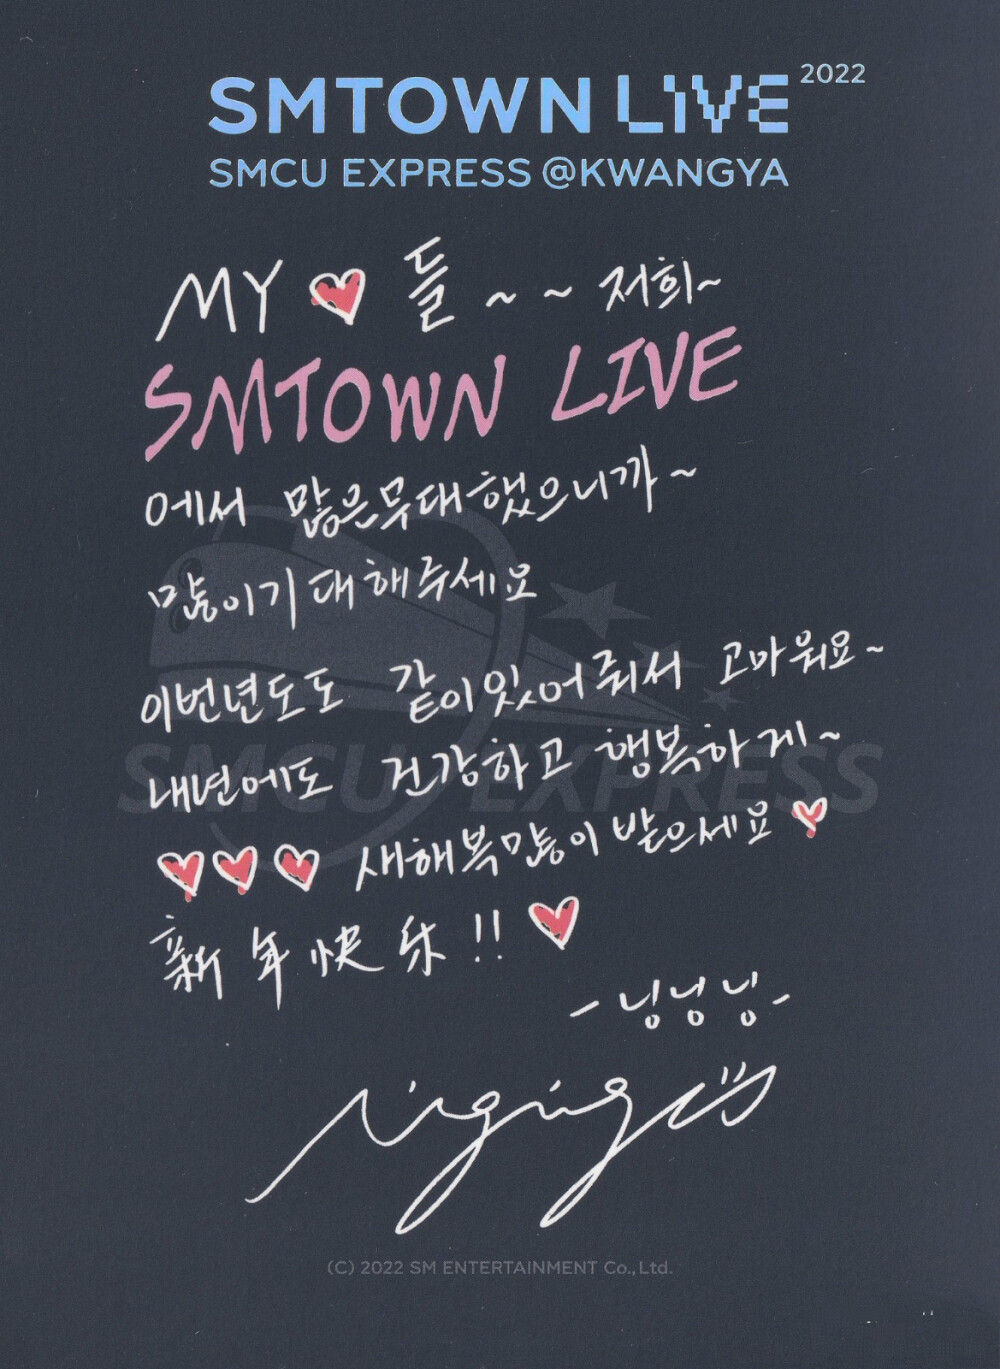 SMTOWN LIVE 2022
SMCU EXPRESS @KWANGYA
MY ♥들~~ 저희~
SMTOWN LIVE
에서 많은무대했으니까~
많이기대해주세요
이번년도도 같이있어줘서 고마워요~
내년에도 건강하고 행복하게~
♥♥♥ 새해복많이받으세요♥
新年快乐!!♥
-닝닝닝-
Ningning
SMCU EXPRESS
(C) 2022 SM ENTERTAINMENT Co.,Ltd.